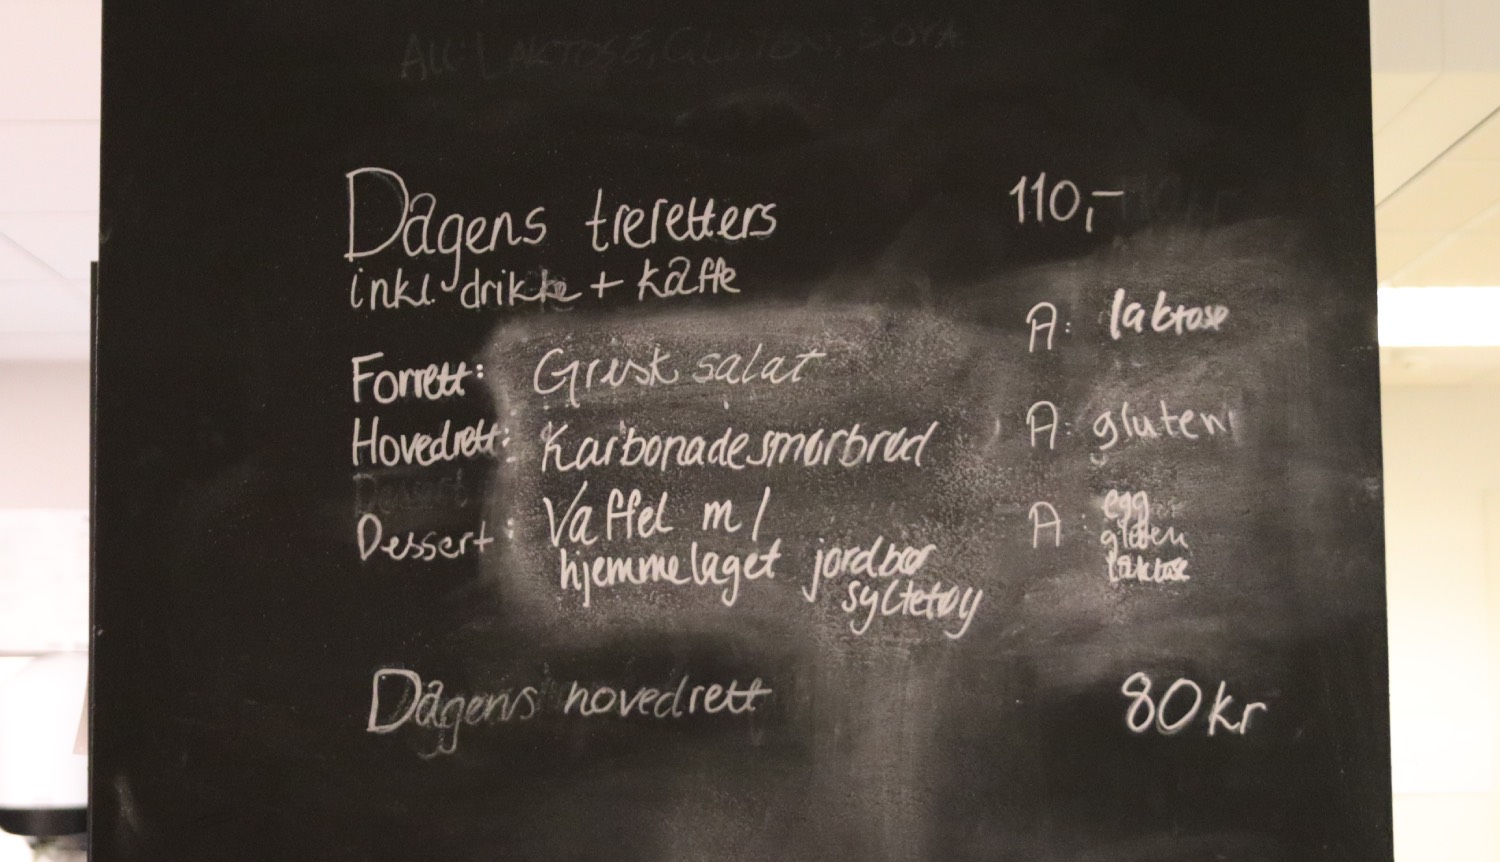 All: LAKTOSE, GLUTEN, SOYA
Dagens treretters 110,-
inkl. drikke + kaffe
A: laktose
Forrett: Gresk salat
Hovedrett: Karbonadesmørbrød A: gluten
Dessert: Vaffel m/ A: egg
hjemmelaget jordbær gluten
syltetøy laktose
Dagens hovedrett 80 kr